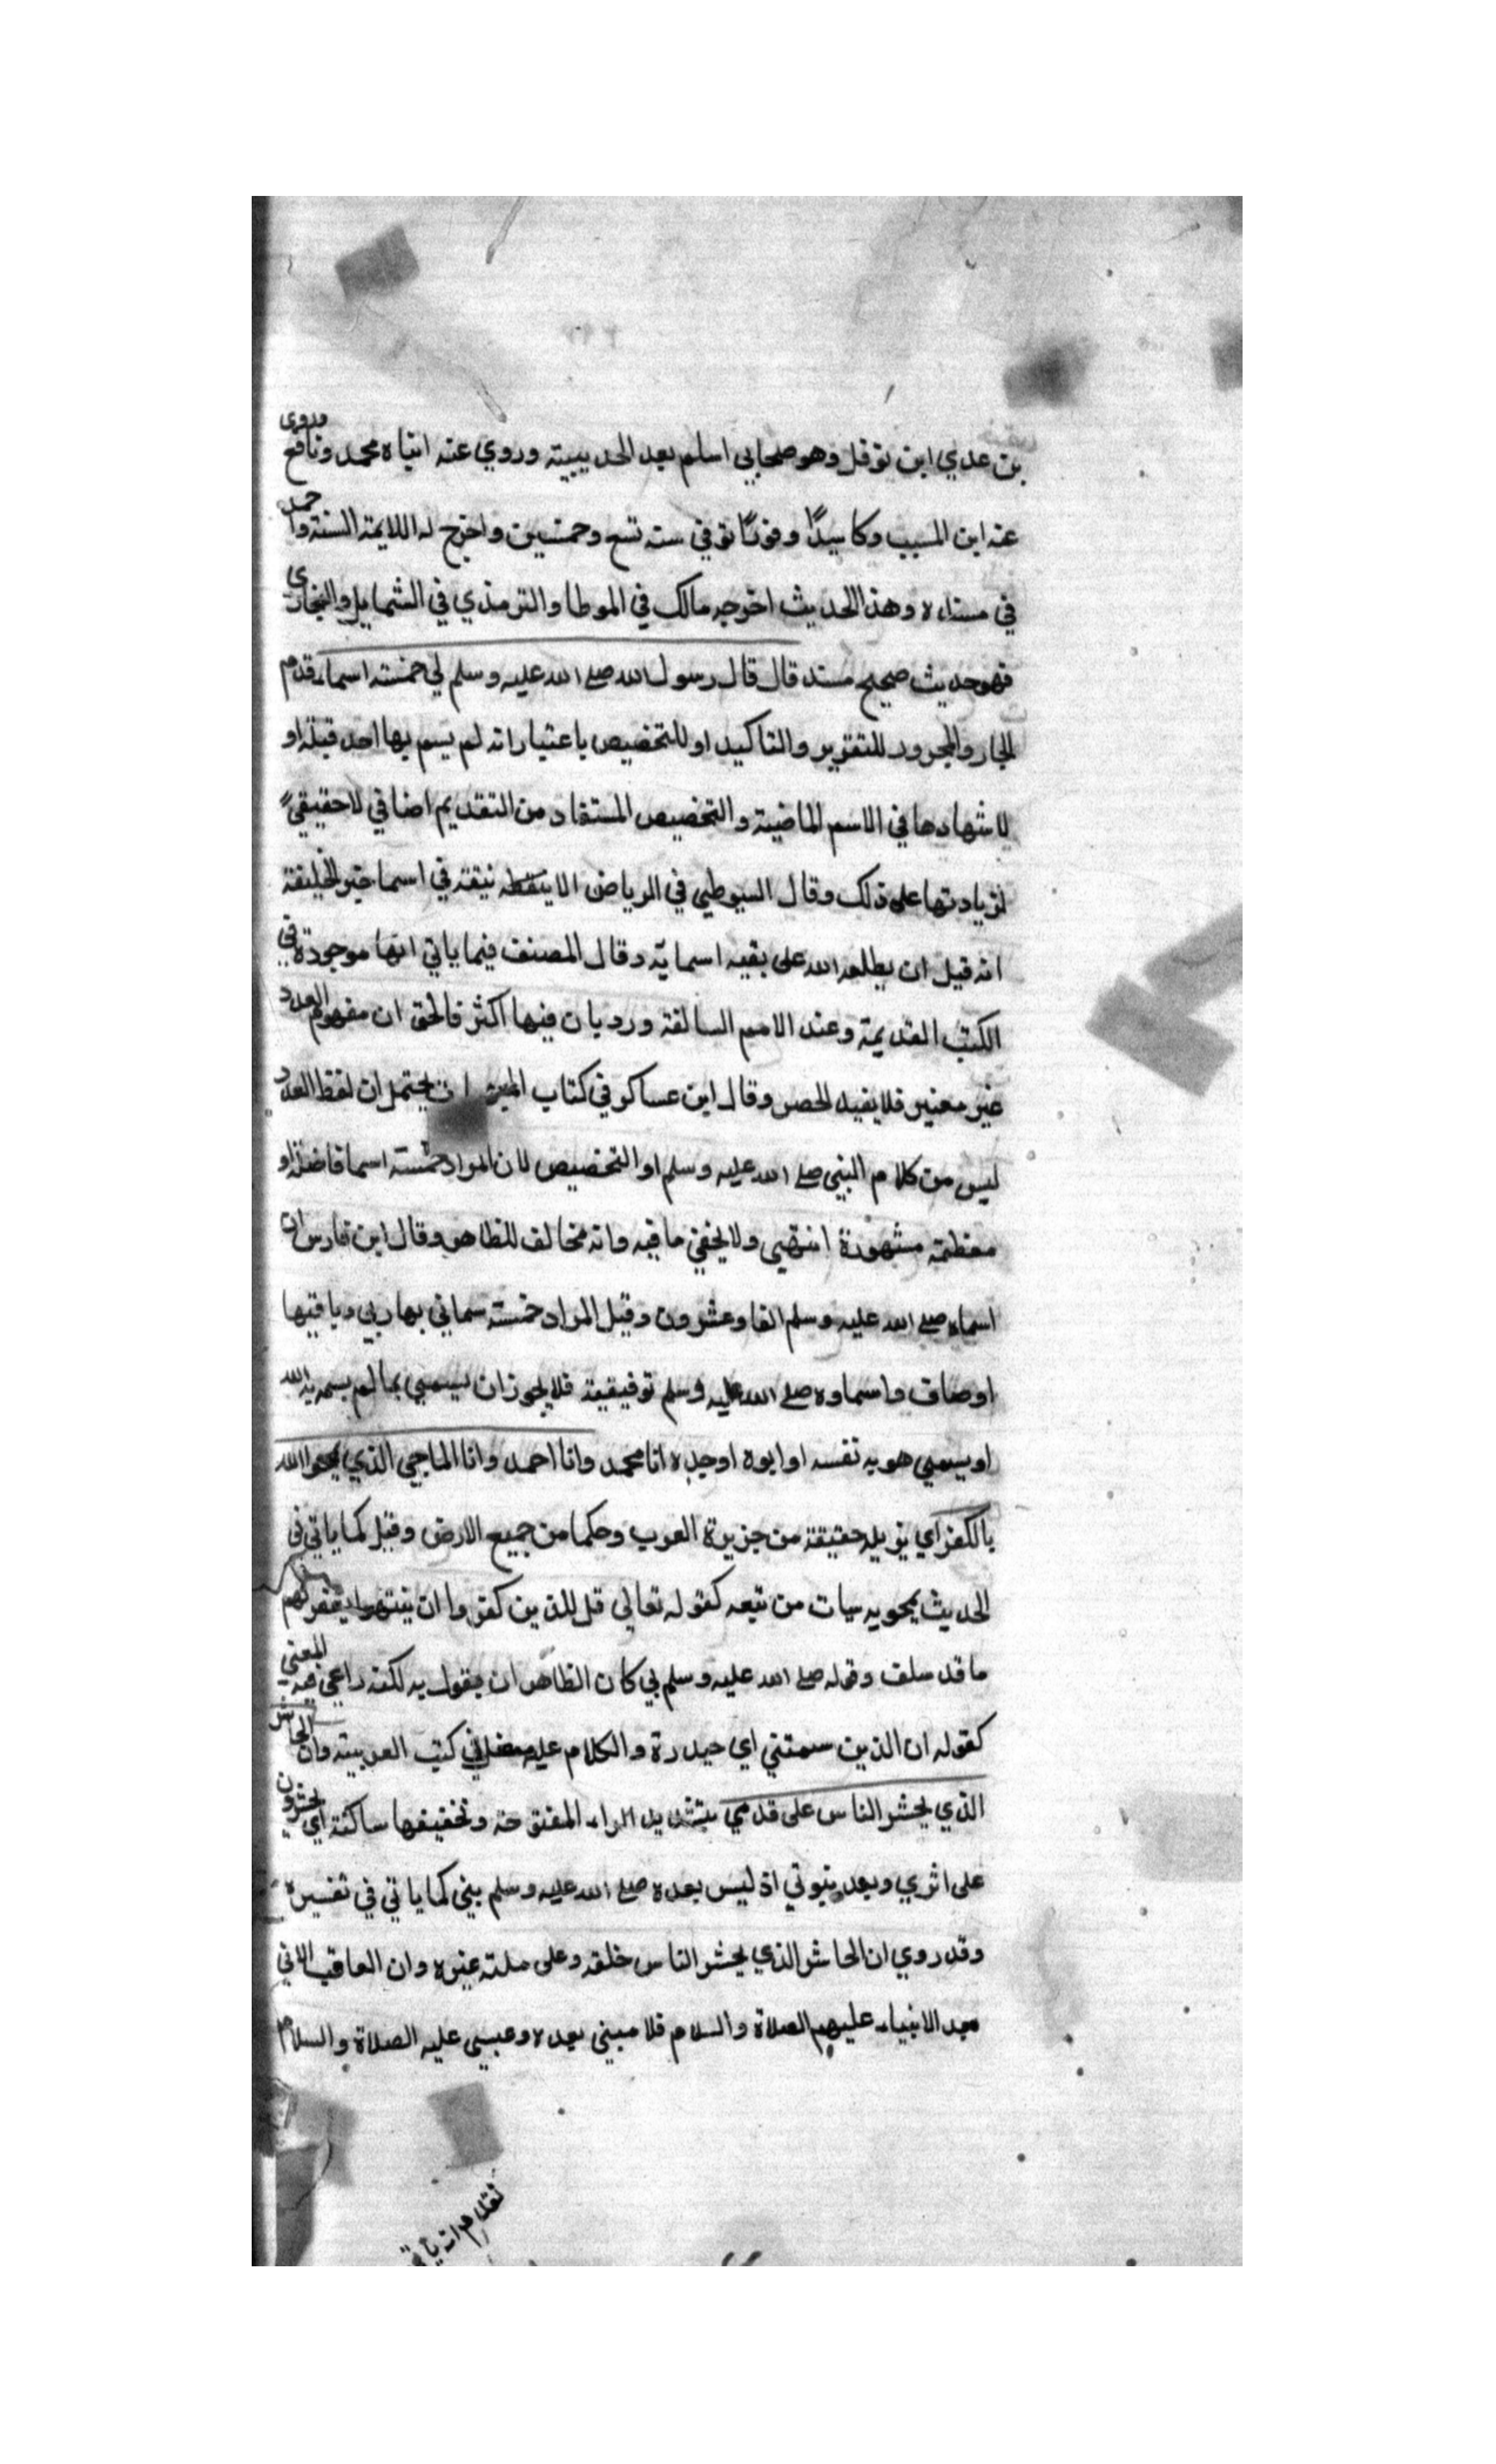 بن عدي ابن نوفل وهو صحابي اسلم بعد الحديبية وروي عنه ابناه محمد ونافع وروى
عنه ابن المسيب وكا سيدًا وقورًا توفي سنة تسع وخمسين واخرج له اللايمة الستة واحمد
في مسنده وهذا الحديث اخرجه مالك في الموطا والترمذي في الشمايل والبخاري
فهو حديث صحيح مسند قال قال رسول الله صلى الله عليه وسلم لي خمسة اسماء قدم
الجار والمجرور للتقرير والتاكيد او للتخصيص باعتبار انه لم يسم بها احد قبله او
لاشتهارها في الامم الماضية والتخصيص المستفاد من التقديم اضافي لا حقيقي
لزيادتها على ذلك وقال السيوطي في الرياض الانيقة في اسما خير الخليقة
انه قبل ان يطلعه الله على بقية اسمايه وقال المصنف فيما ياتي انها موجودة في
الكتب القديمة وعند الامم السالفة ورد بان فيها اكثر فالحق ان مفهوم العدد
غير معتبر فلا يفيد الحصر وقال ابن عساكر في كتاب ان يحتمل ان لفظ العدد
ليس من كلام النبي صلى الله عليه وسلم او التخصيص لان المراد خمسة اسما فاضلة او
معظمة مشهورة انتهى ولا يخفى ما فيه وانه مخالف للظاهر وقال ابن فارس ان
اسماه صلى الله عليه وسلم الفا وعشرون وقيل المراد خمسة سماني بها ربي وباقيها
اوصاف واسماوه صلى الله عليه وسلم توقيفية فلا يجوز ان يسمى بما لم يسمه به الله
او يسمي هو به نفسه او ابوه او جده انا محمد وانا احمد وانا الماحي الذي يمحوا الله
بي الكفر اي يزيله حقيقة من جزيرة العرب وحكما من جميع الارض وقيل كما ياتي في
الحديث يمحو به سيات من تبعه كقوله تعالى قل للذين كفروا ان ينتهوا يغفر لهم
ما قد سلف وقوله صلى الله عليه وسلم بي كان الظاهر ان يقول به لكنه راعى فيه المعنى
كقوله ان الذين سمتني اي حيدرة والكلام عليه مفصل في كتب العربية وانا الحاشر
الذي يحشر الناس على قدمي بتشديد الراء المفتوحة وتخفيفها ساكنة اي يحشرون
على اثري وبعد نبوتي اذ ليس بعده صلى الله عليه وسلم نبي كما ياتي في تفسيره
وقد روي ان الحاشر الذي يحشر الناس خلفه وعلى ملته غيره وان العاقب الاتي
بعد الانبياء عليهم الصلاة والسلام فلا نبي بعده وعيسى عليه الصلاة والسلام